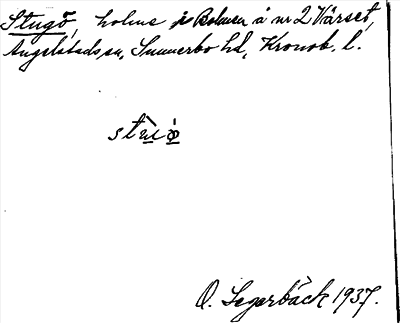 Stugö, holme i Bolmen å nr 2 Vårset,
Angelstads sn, Sunnerbo hd, Kronob. l.
O. Segerbäck 1937.